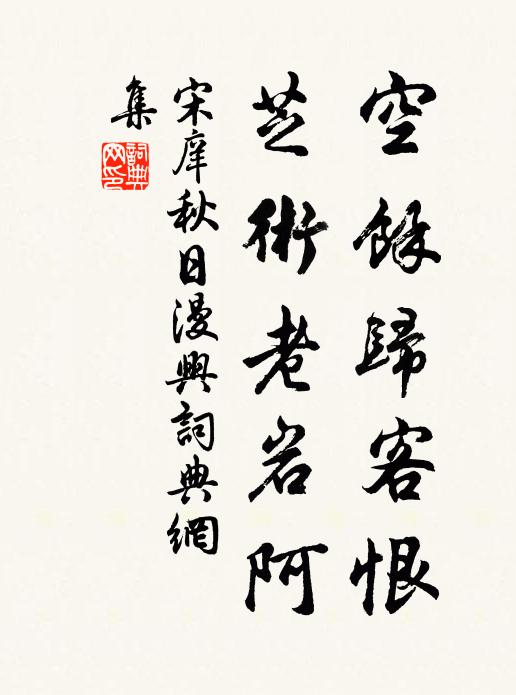 空餘歸客恨
芝術老岩阿
宋庠秋日漫興詞典網
集
詞典
网印